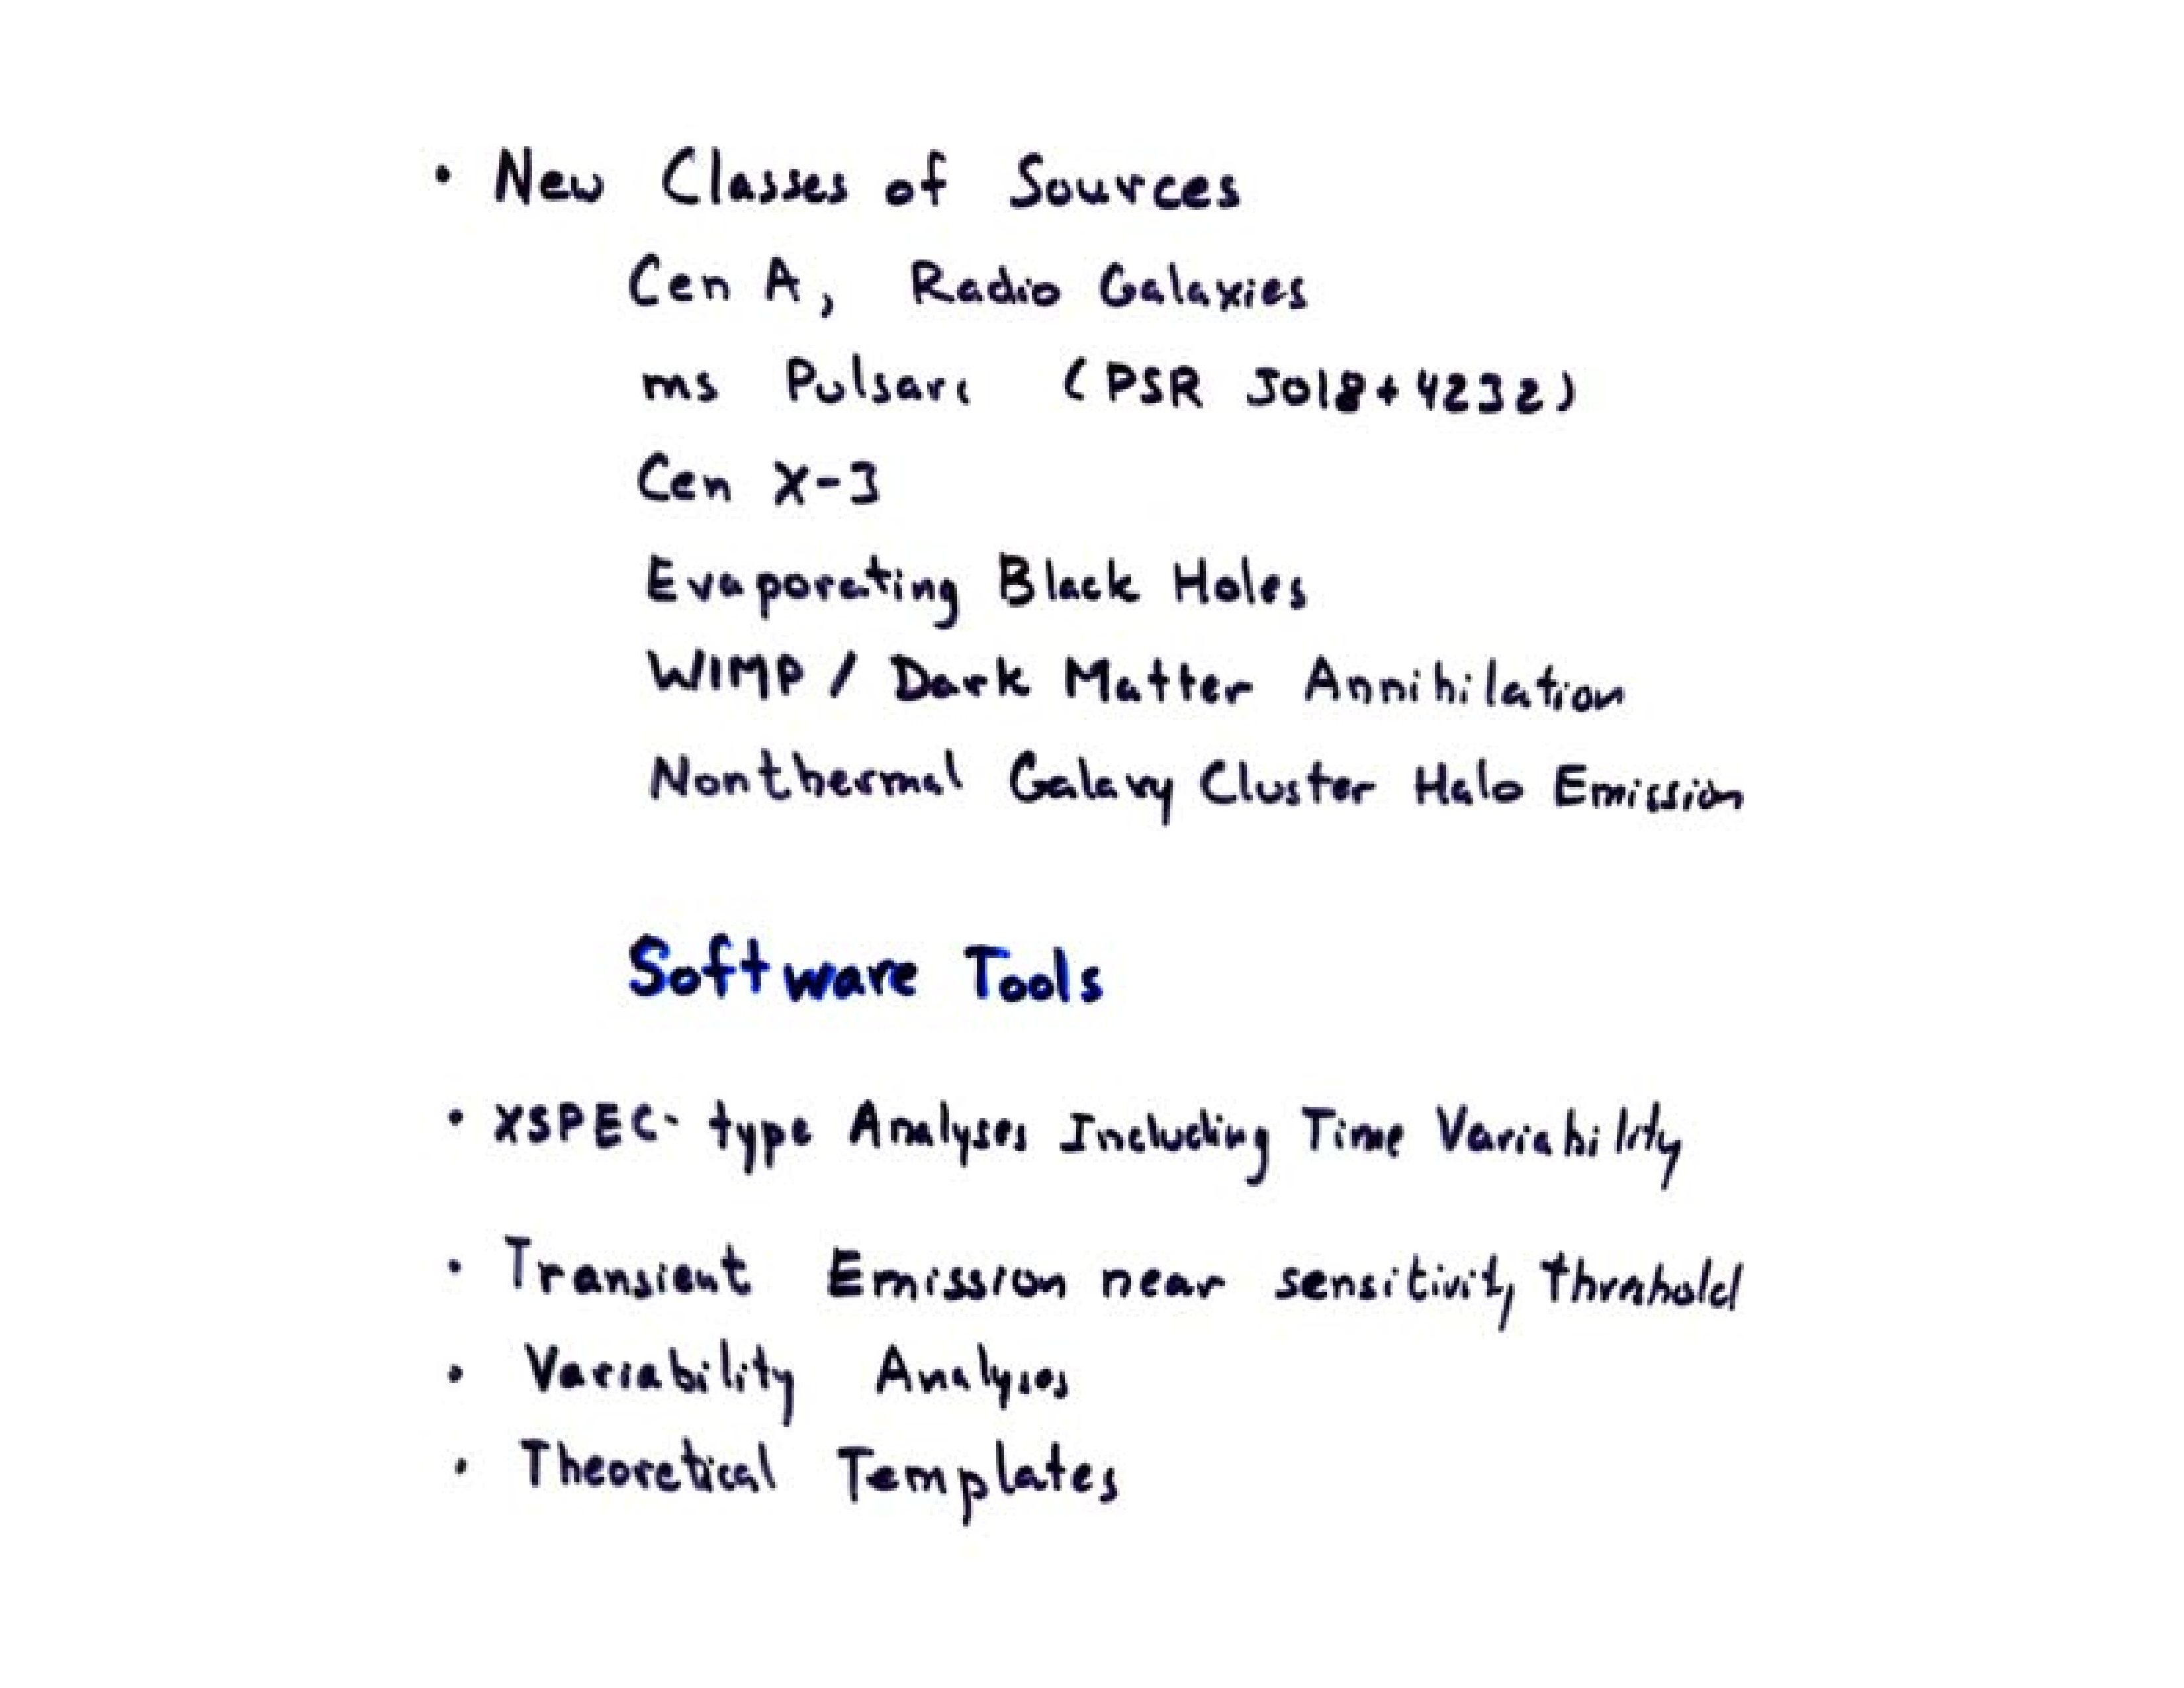 • New Classes of Sources
Cen A, Radio Galaxies
ms Pulsars (PSR J018+4232)
Cen X-3
Evaporating Black Holes
WIMP / Dark Matter Annihilation
Nonthermal Galaxy Cluster Halo Emission
Software Tools
• XSPEC-type Analyses Including Time Variability
• Transient Emission near sensitivity threshold
• Variability Analyses
• Theoretical Templates